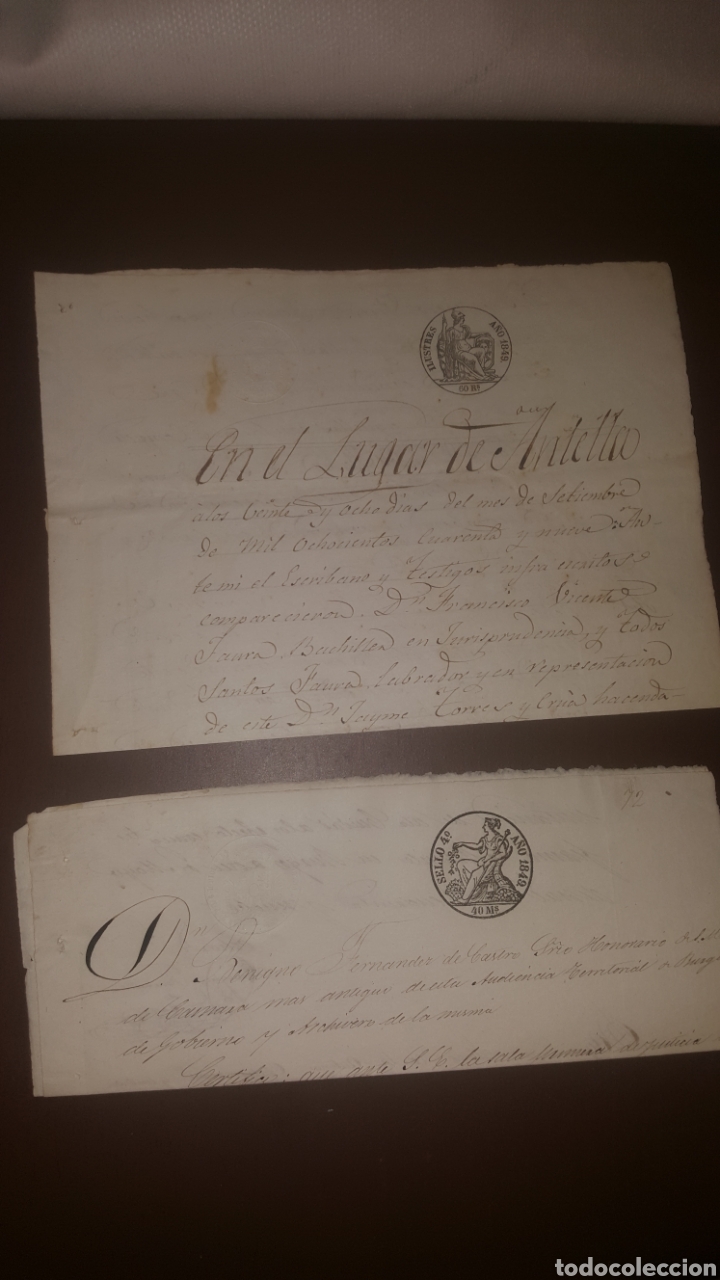 ILUSTRES AÑO 1849
60 Ms
En el Lugar de Antella
a los Veinte y ocho dias del mes de Setiembre
de Mil Ochocientos Cuarenta y nueve: An-
te mi el Escribano y Testigos infra escritos,
comparecieron Dn. Francisco Vicente
Faura Bachiller en Jurisprudencia, y Todos
Santos Faura Labrador y en representacion
de este Dn. Jayme Torres y hacenda-
72
SELLO 4º AÑO 1849.
40 Ms
Dn. Benigno Fernandez de Castro Srio Honorario de S.M.
de Camara mas antiguo de esta Audiencia Territorial de Burgos
de Gobierno y Archivero de la misma
Certifico: que ante S. E. la sala primera
todocoleccion